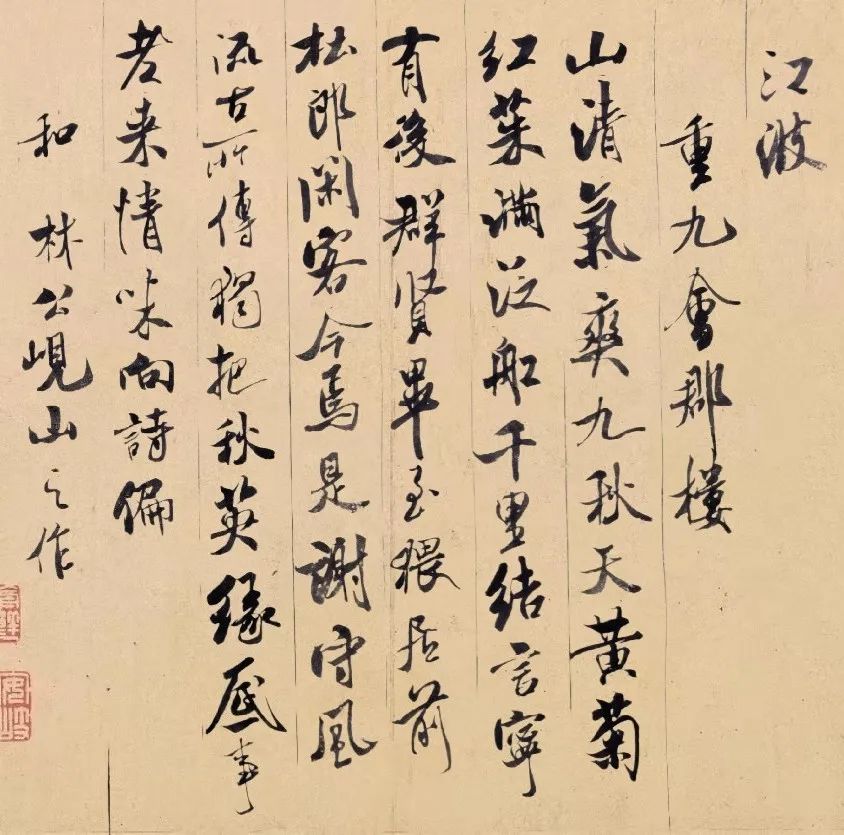 江波
重九會郡樓
山清氣爽九秋天黄菊
紅茱滿泛船千里結言寧
有後群賢畢至猥居前
杜郎閑客今焉是謝守風
流古所傳獨把秋英緣底事
老来情味向詩偏
和林公峴山之作